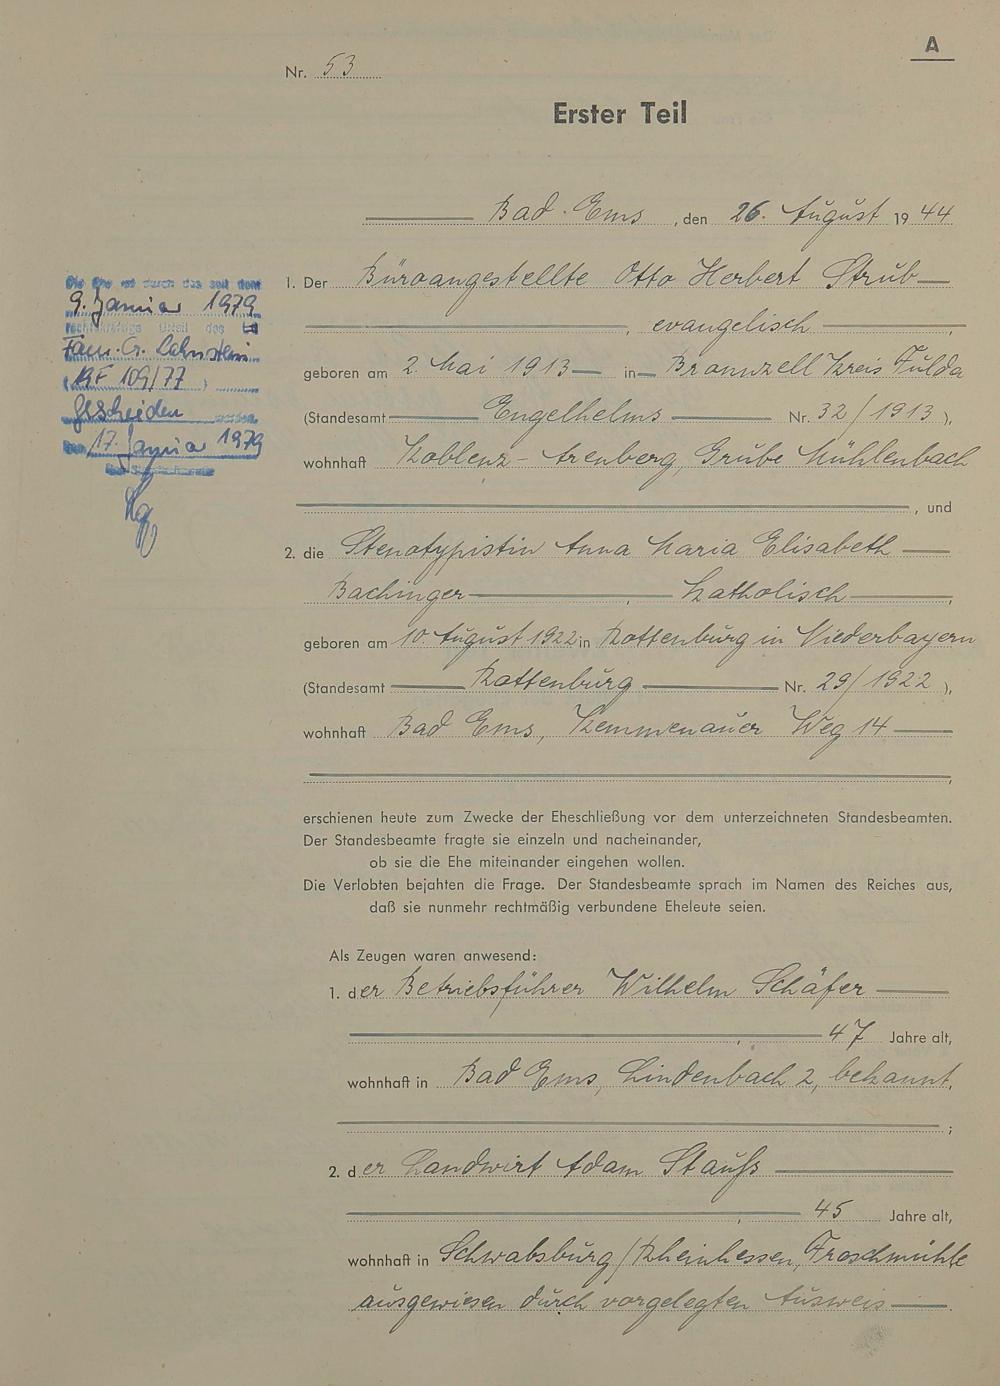 A
Nr. 53
Erster Teil
Bad Ems, den 26. August 1944
1. Der Büroangestellte Otto Herbert Strub
, evangelisch,
geboren am 2. Mai 1913 in Bronnzell Kreis Fulda
(Standesamt Engelhelms Nr. 32/1913),
wohnhaft Koblenz-Arenberg, Grube Mühlenbach
, und
2. die Stenotypistin Anna Maria Elisabeth
Bachinger, katholisch,
geboren am 10. August 1922 in Rottenburg in Niederbayern
(Standesamt Rottenburg Nr. 29/1922),
wohnhaft Bad Ems, Kemmenauer Weg 14
,
erschienen heute zum Zwecke der Eheschließung vor dem unterzeichneten Standesbeamten.
Der Standesbeamte fragte sie einzeln und nacheinander,
ob sie die Ehe miteinander eingehen wollen.
Die Verlobten bejahten die Frage. Der Standesbeamte sprach im Namen des Reiches aus,
daß sie nunmehr rechtmäßig verbundene Eheleute seien.
Als Zeugen waren anwesend:
1. der Betriebsführer Wilhelm Schäfer
, 47 Jahre alt,
wohnhaft in Bad Ems, Lindenbach 2, bekannt,
;
2. der Landwirt Adam Stauß
, 45 Jahre alt,
wohnhaft in Schwabsburg/Rheinhessen, Froschmühle
ausgewiesen durch vorgelegten Ausweis.
Die Ehe ist durch das seit dem
9. Januar 1979
rechtskräftige Urteil des
Fam. G. Lahnstein
(1 F 109/77)
geschieden worden.
17. Januar 1979